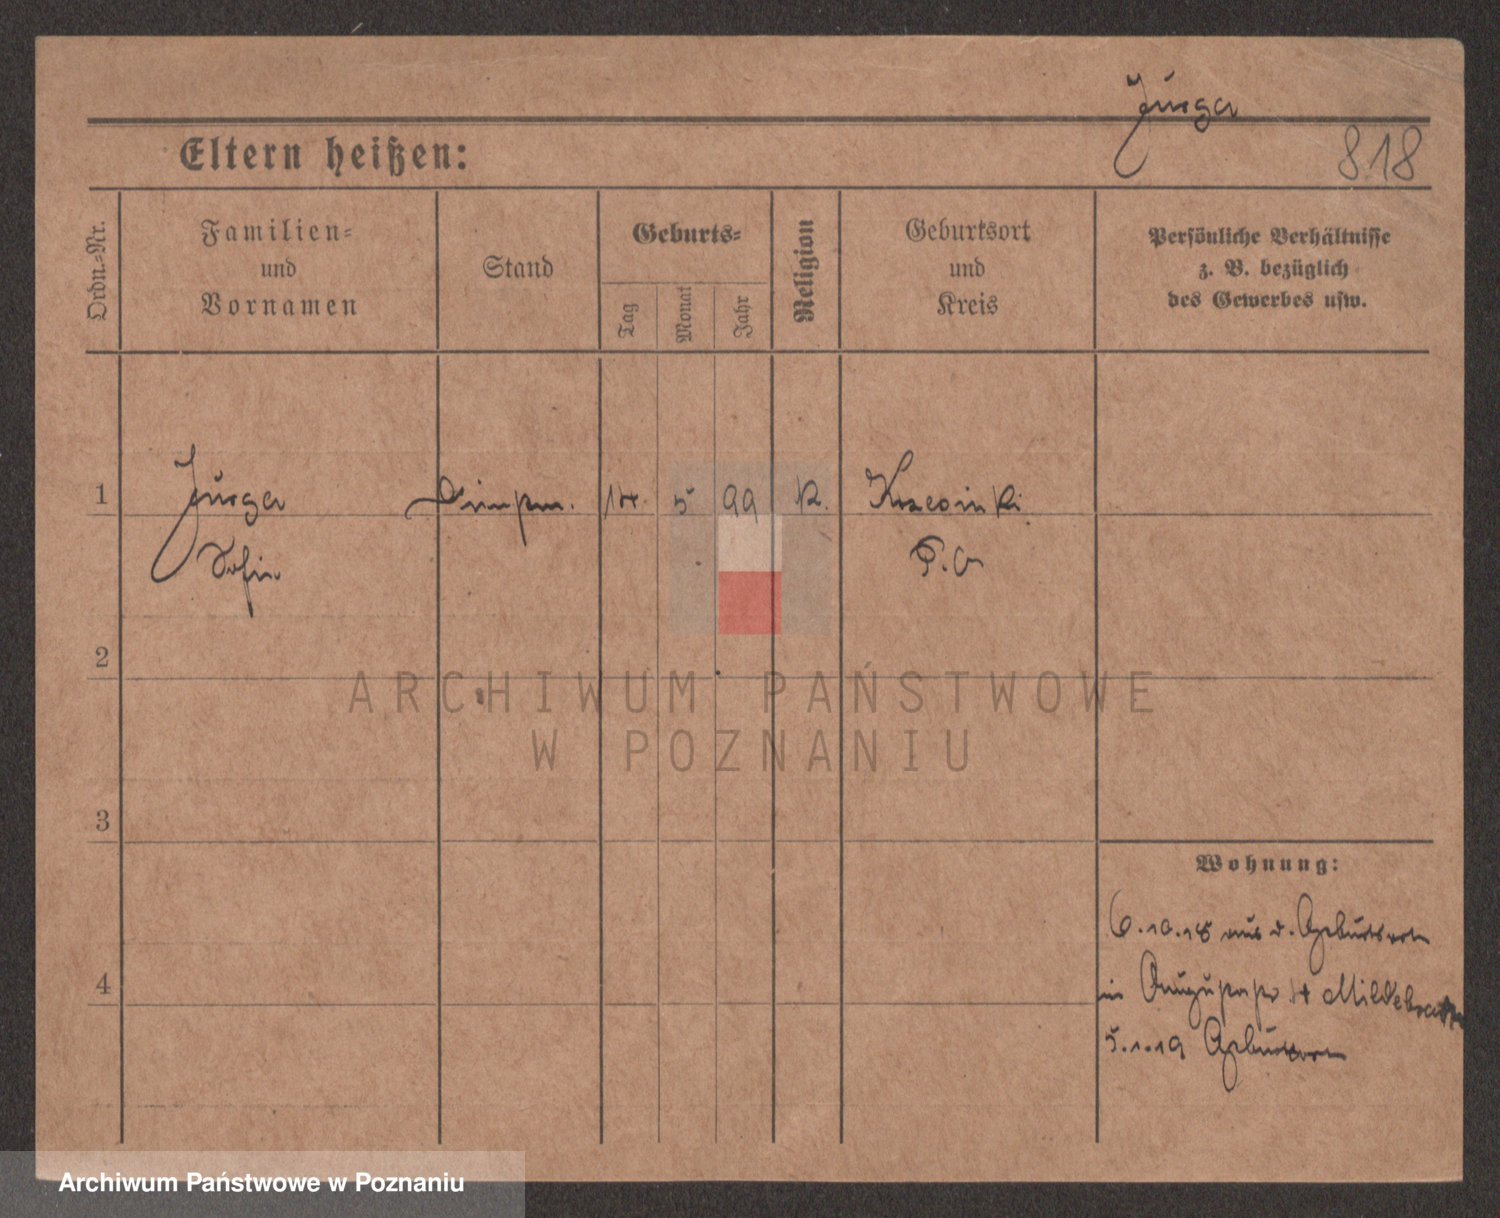 Jurga
Eltern heißen:
818
Ordn.-Nr.
Familien-
und
Vornamen
Stand
Geburts-
Tag
Monat
Jahr
Religion
Geburtsort
und
Kreis
Persönliche Verhältnisse
z. B. bezüglich
des Gewerbes usw.
1
Jurga
14. 5 99 K.
Sofie
P. O
2
ARCHIWUM PAŃSTWOWE
W POZNANIU
3
Wohnung:
6.10.18 aus d. Geburtsort
4
in 14 Mildebrath
5.1.19 Geburtsort
Archiwum Państwowe w Poznaniu